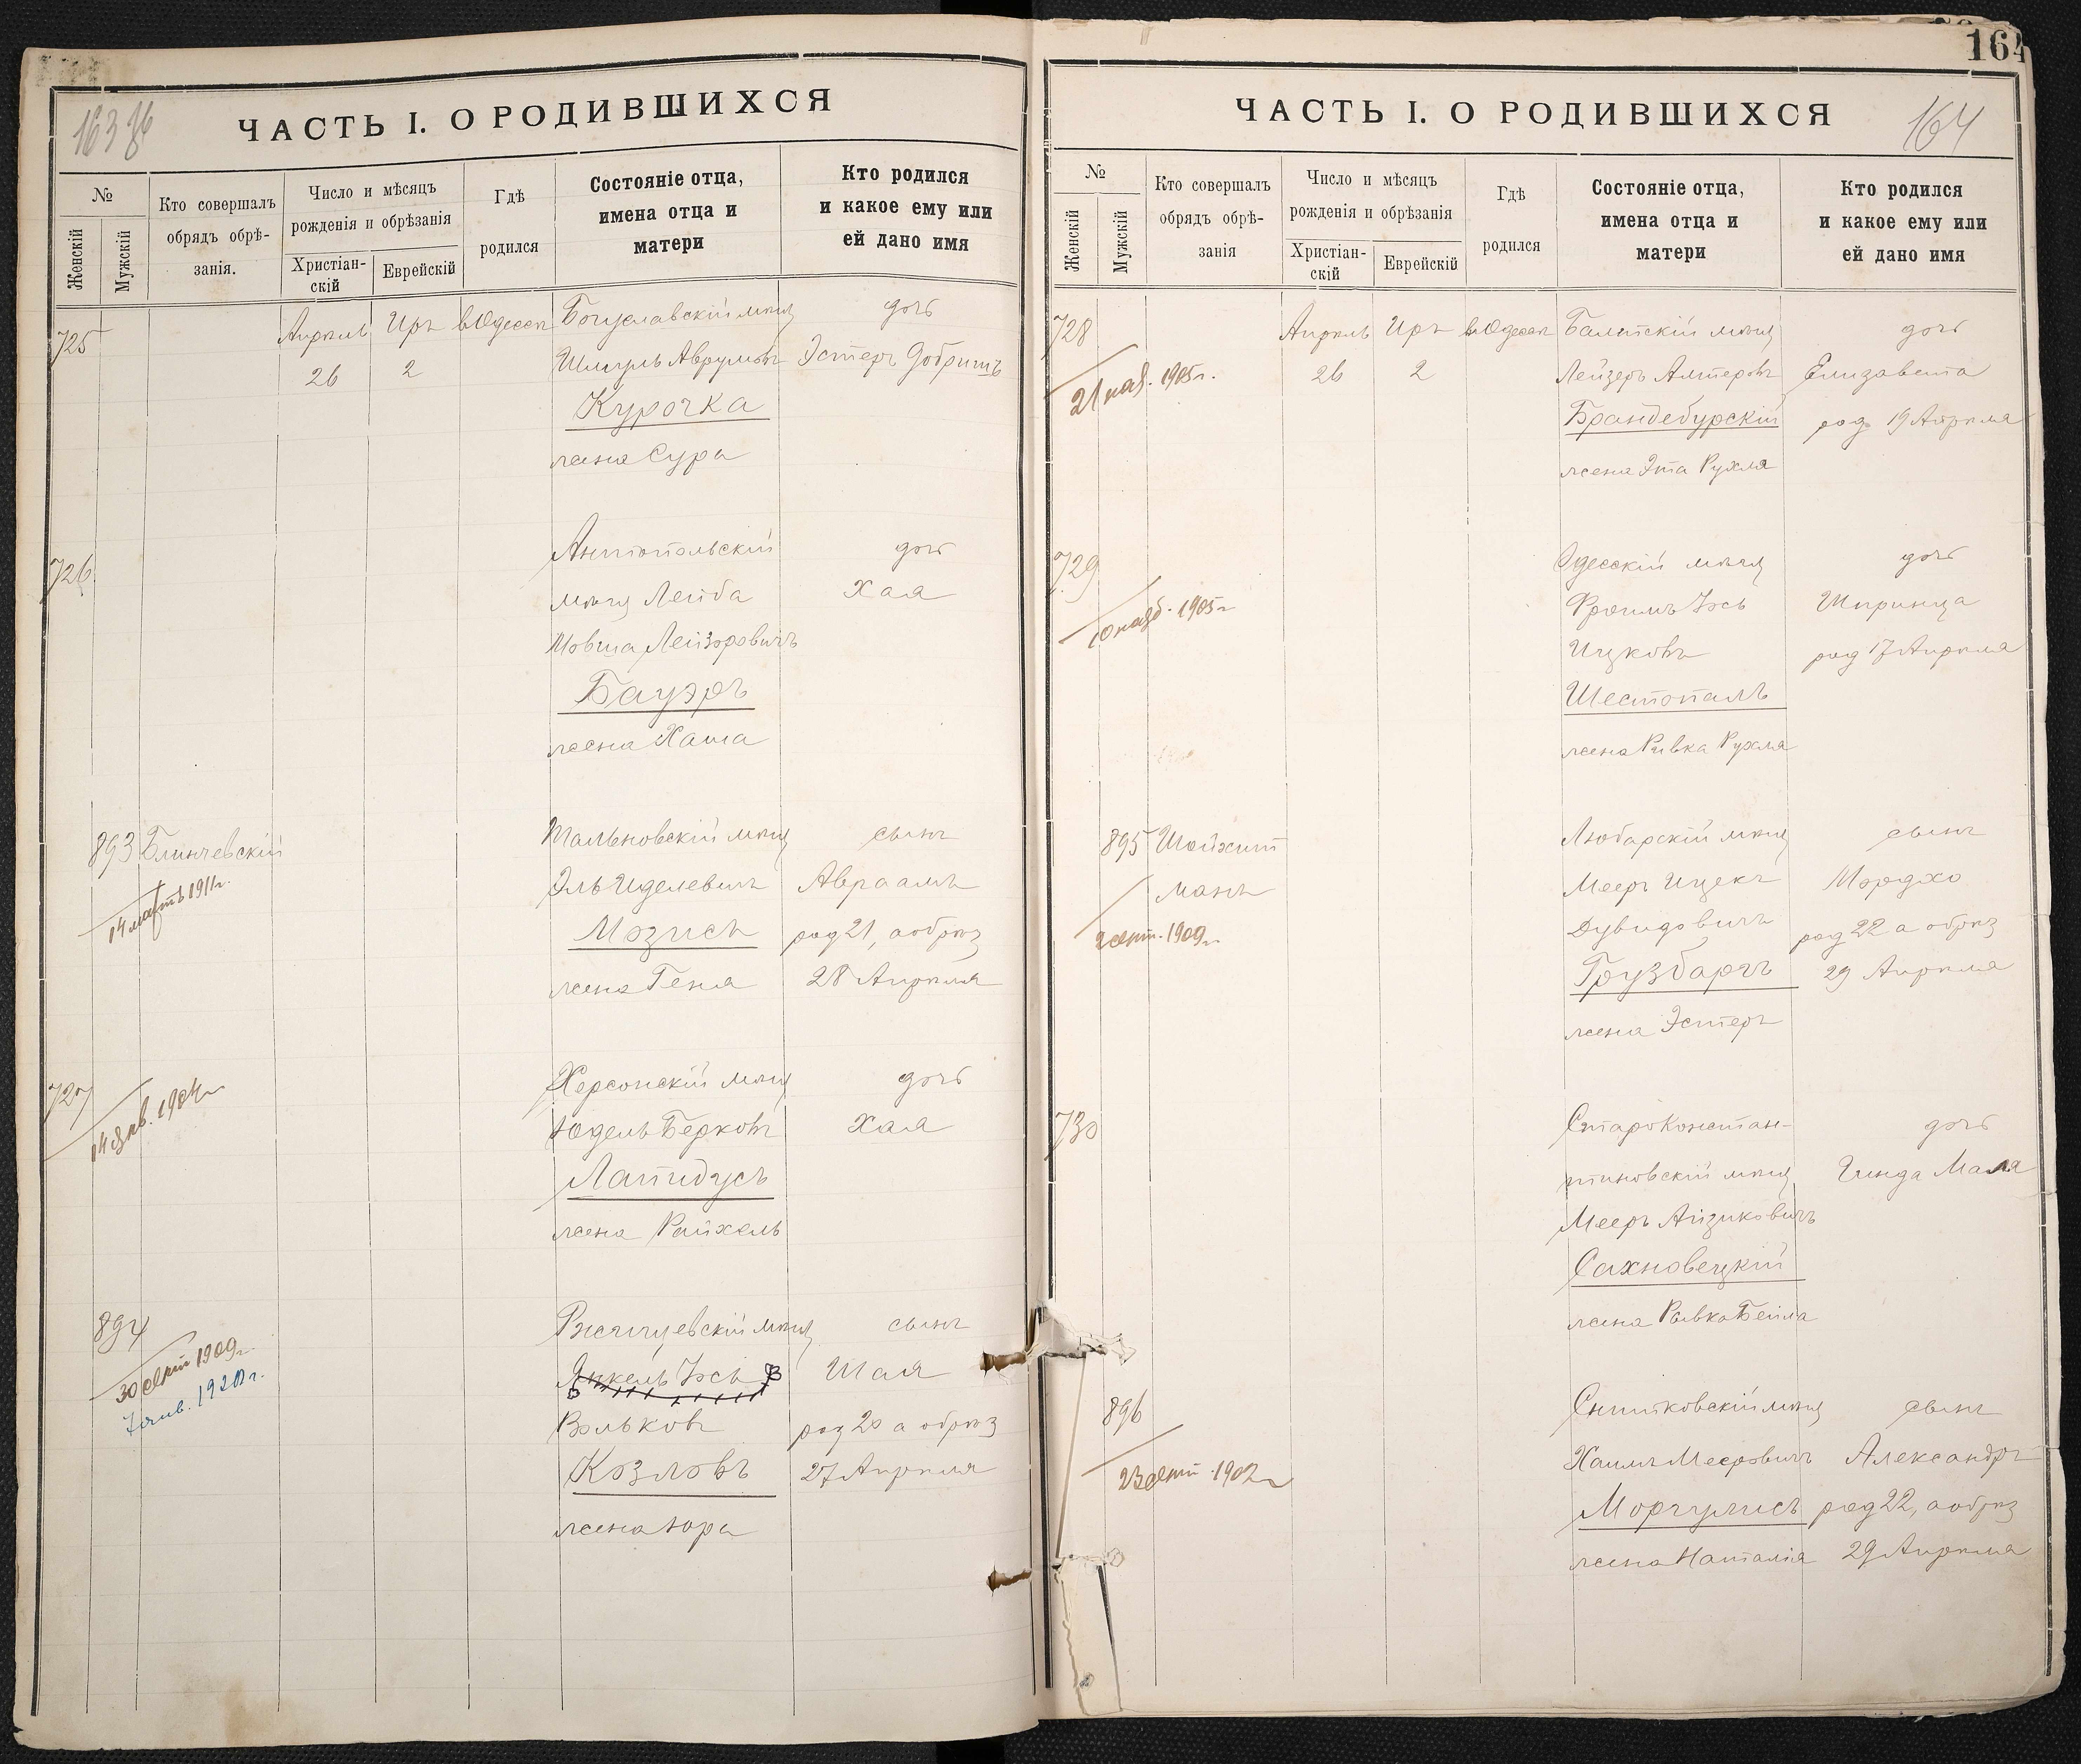 163 об
ЧАСТЬ I. О РОДИВШИХСЯ
№
Женскій
Мужскій
Кто совершалъ
обрядъ обрѣ-
занія.
Число и мѣсяцъ
рожденія и обрѣзанія
Христіан-
скій
Еврейскій
Гдѣ
родился
Состояніе отца,
имена отца и
матери
Кто родился
и какое ему или
ей дано имя
725
Апрѣль
26
Иръ
2
въ Одессѣ
Богуславскій мѣщ
Шмуль Аврумовъ
Курочка
жена Сура
дочь
Эстеръ Добришъ
726
Антопольскій
мѣщ Лейба
Мовша Лейзеровичъ
Бауэръ
жена Хаша
дочь
Хая
893
14 мартъ 1911 г.
Блинчевскій
Тальновскій мѣщ
Эль Иделевичъ
Мозисъ
жена Геня
сынъ
Авраамъ
род 21, а обрѣз
28 Апрѣля
727
14 янв. 1904 г
Херсонскій мѣщ
Юдель Берковъ
Лапидусъ
жена Райхель
дочь
Хая
894
30 сент 1909 г.
7 янв. 1920 г.
Ржищевскій мѣщ
Янкель Іось
Вольковъ
Козловъ
жена Юра
сынъ
Шая
род 20 а обрѣз
27 Апрѣля
164
ЧАСТЬ I. О РОДИВШИХСЯ
164
№
Женскій
Мужскій
Кто совершалъ
обрядъ обрѣ-
занія
Число и мѣсяцъ
рожденія и обрѣзанія
Христіан-
скій
Еврейскій
Гдѣ
родился
Состояніе отца,
имена отца и
матери
Кто родился
и какое ему или
ей дано имя
728
21 нояб. 1905 г.
Апрѣль
26
Иръ
2
въ Одессѣ
Балтскій мѣщ
Лейзеръ Алтеровъ
Брандебурскій
жена Эта Рухля
дочь
Елизавета
род 19 Апрѣля
729
10 нояб. 1905 г
Одесскій мѣщ
Фроимъ Іось
Ицковъ
Шестопалъ
жена Ривка Рухля
дочь
Шпринца
род 17 Апрѣля
895
2 сент. 1909 г.
Шойхит
манъ
Любарскій мѣщ
Мееръ Ицекъ
Дувидовичъ
Грузбаргъ
жена Эстеръ
сынъ
Мордхо
род 22 а обрѣз
29 Апрѣля
730
Староконстан-
тиновскій мѣщ
Мееръ Айзиковичъ
Сахновецкій
жена Ривка Бейла
дочь
Гинда Мала
896
23 сент. 1902 г
Снитковскій мѣщ
Хаимъ Мееровичъ
Моргулисъ
жена Наталія
сынъ
Александръ
род 22, а обрѣз
29 Апрѣля